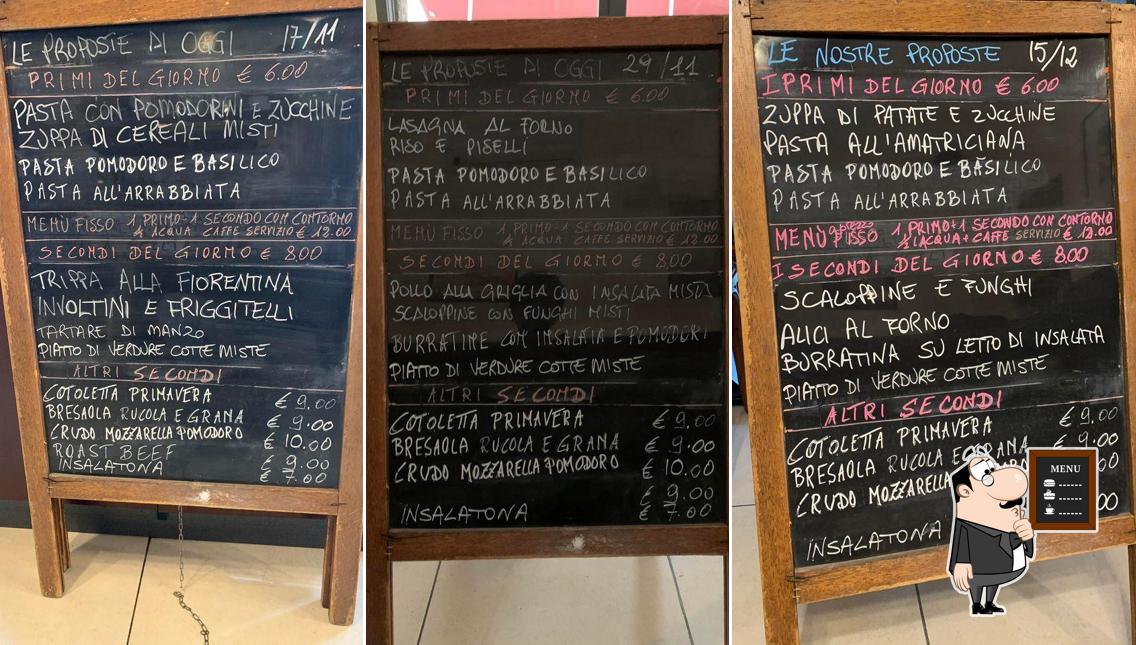 LE PROPOSTE DI OGGI 17/11
PRIMI DEL GIORNO € 6.00
PASTA CON POMODORINI E ZUCCHINE
ZUPPA DI CEREALI MISTI
PASTA POMODORO E BASILICO
PASTA ALL'ARRABBIATA
MENÙ FISSO 1 PRIMO+1 SECONDO CON CONTORNO
½ ACQUA CAFFE SERVIZIO € 12.00
SECONDI DEL GIORNO € 8,00
TRIPPA ALLA FIORENTINA
INVOLTINI E FRIGGITELLI
TARTARE DI MANZO
PIATTO DI VERDURE COTTE MISTE
ALTRI SECONDI
COTOLETTA PRIMAVERA € 9.00
BRESAOLA RUCOLA E GRANA € 9.00
CRUDO MOZZARELLA POMODORO € 10.00
ROAST BEEF € 9.00
INSALATONA € 7.00
LE PROPOSTE DI OGGI 29/11
PRIMI DEL GIORNO € 6.00
LASAGNA AL FORNO
RISO E PISELLI
PASTA POMODORO E BASILICO
PASTA ALL'ARRABBIATA
MENÙ FISSO 1 PRIMO+1 SECONDO CON CONTORNO
½ ACQUA CAFFE SERVIZIO € 12.00
SECONDI DEL GIORNO € 8,00
POLLO ALLA GRIGLIA CON INSALATA MISTA
SCALOPPINE CON FUNGHI MISTI
BURRATINE CON INSALATA E POMODORI
PIATTO DI VERDURE COTTE MISTE
ALTRI SECONDI
COTOLETTA PRIMAVERA € 9.00
BRESAOLA RUCOLA E GRANA € 9.00
CRUDO MOZZARELLA POMODORO € 10.00
€ 9.00
INSALATONA € 7.00
LE NOSTRE PROPOSTE 15/12
I PRIMI DEL GIORNO € 6.00
ZUPPA DI PATATE E ZUCCHINE
PASTA ALL'AMATRICIANA
PASTA POMODORO E BASILICO
PASTA ALL'ARRABBIATA
MENÙ A PREZZO FISSO 1 PRIMO+1 SECONDO CON CONTORNO
½ ACQUA+CAFFE SERVIZIO € 12.00
I SECONDI DEL GIORNO € 8.00
SCALOPPINE E FUNGHI
ALICI AL FORNO
BURRATINA SU LETTO DI INSALATA
PIATTO DI VERDURE COTTE MISTE
ALTRI SECONDI
COTOLETTA PRIMAVERA € 9.00
BRESAOLA RUCOLA E GRANA € 9.00
CRUDO MOZZARELLA
INSALATONA
MENU